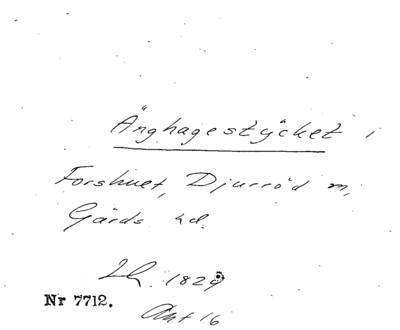 Änghagestycket i
Forshuet, Djurröd m,
Gärds hd.
Lh. 1829
Nr 7712.
Akt 16